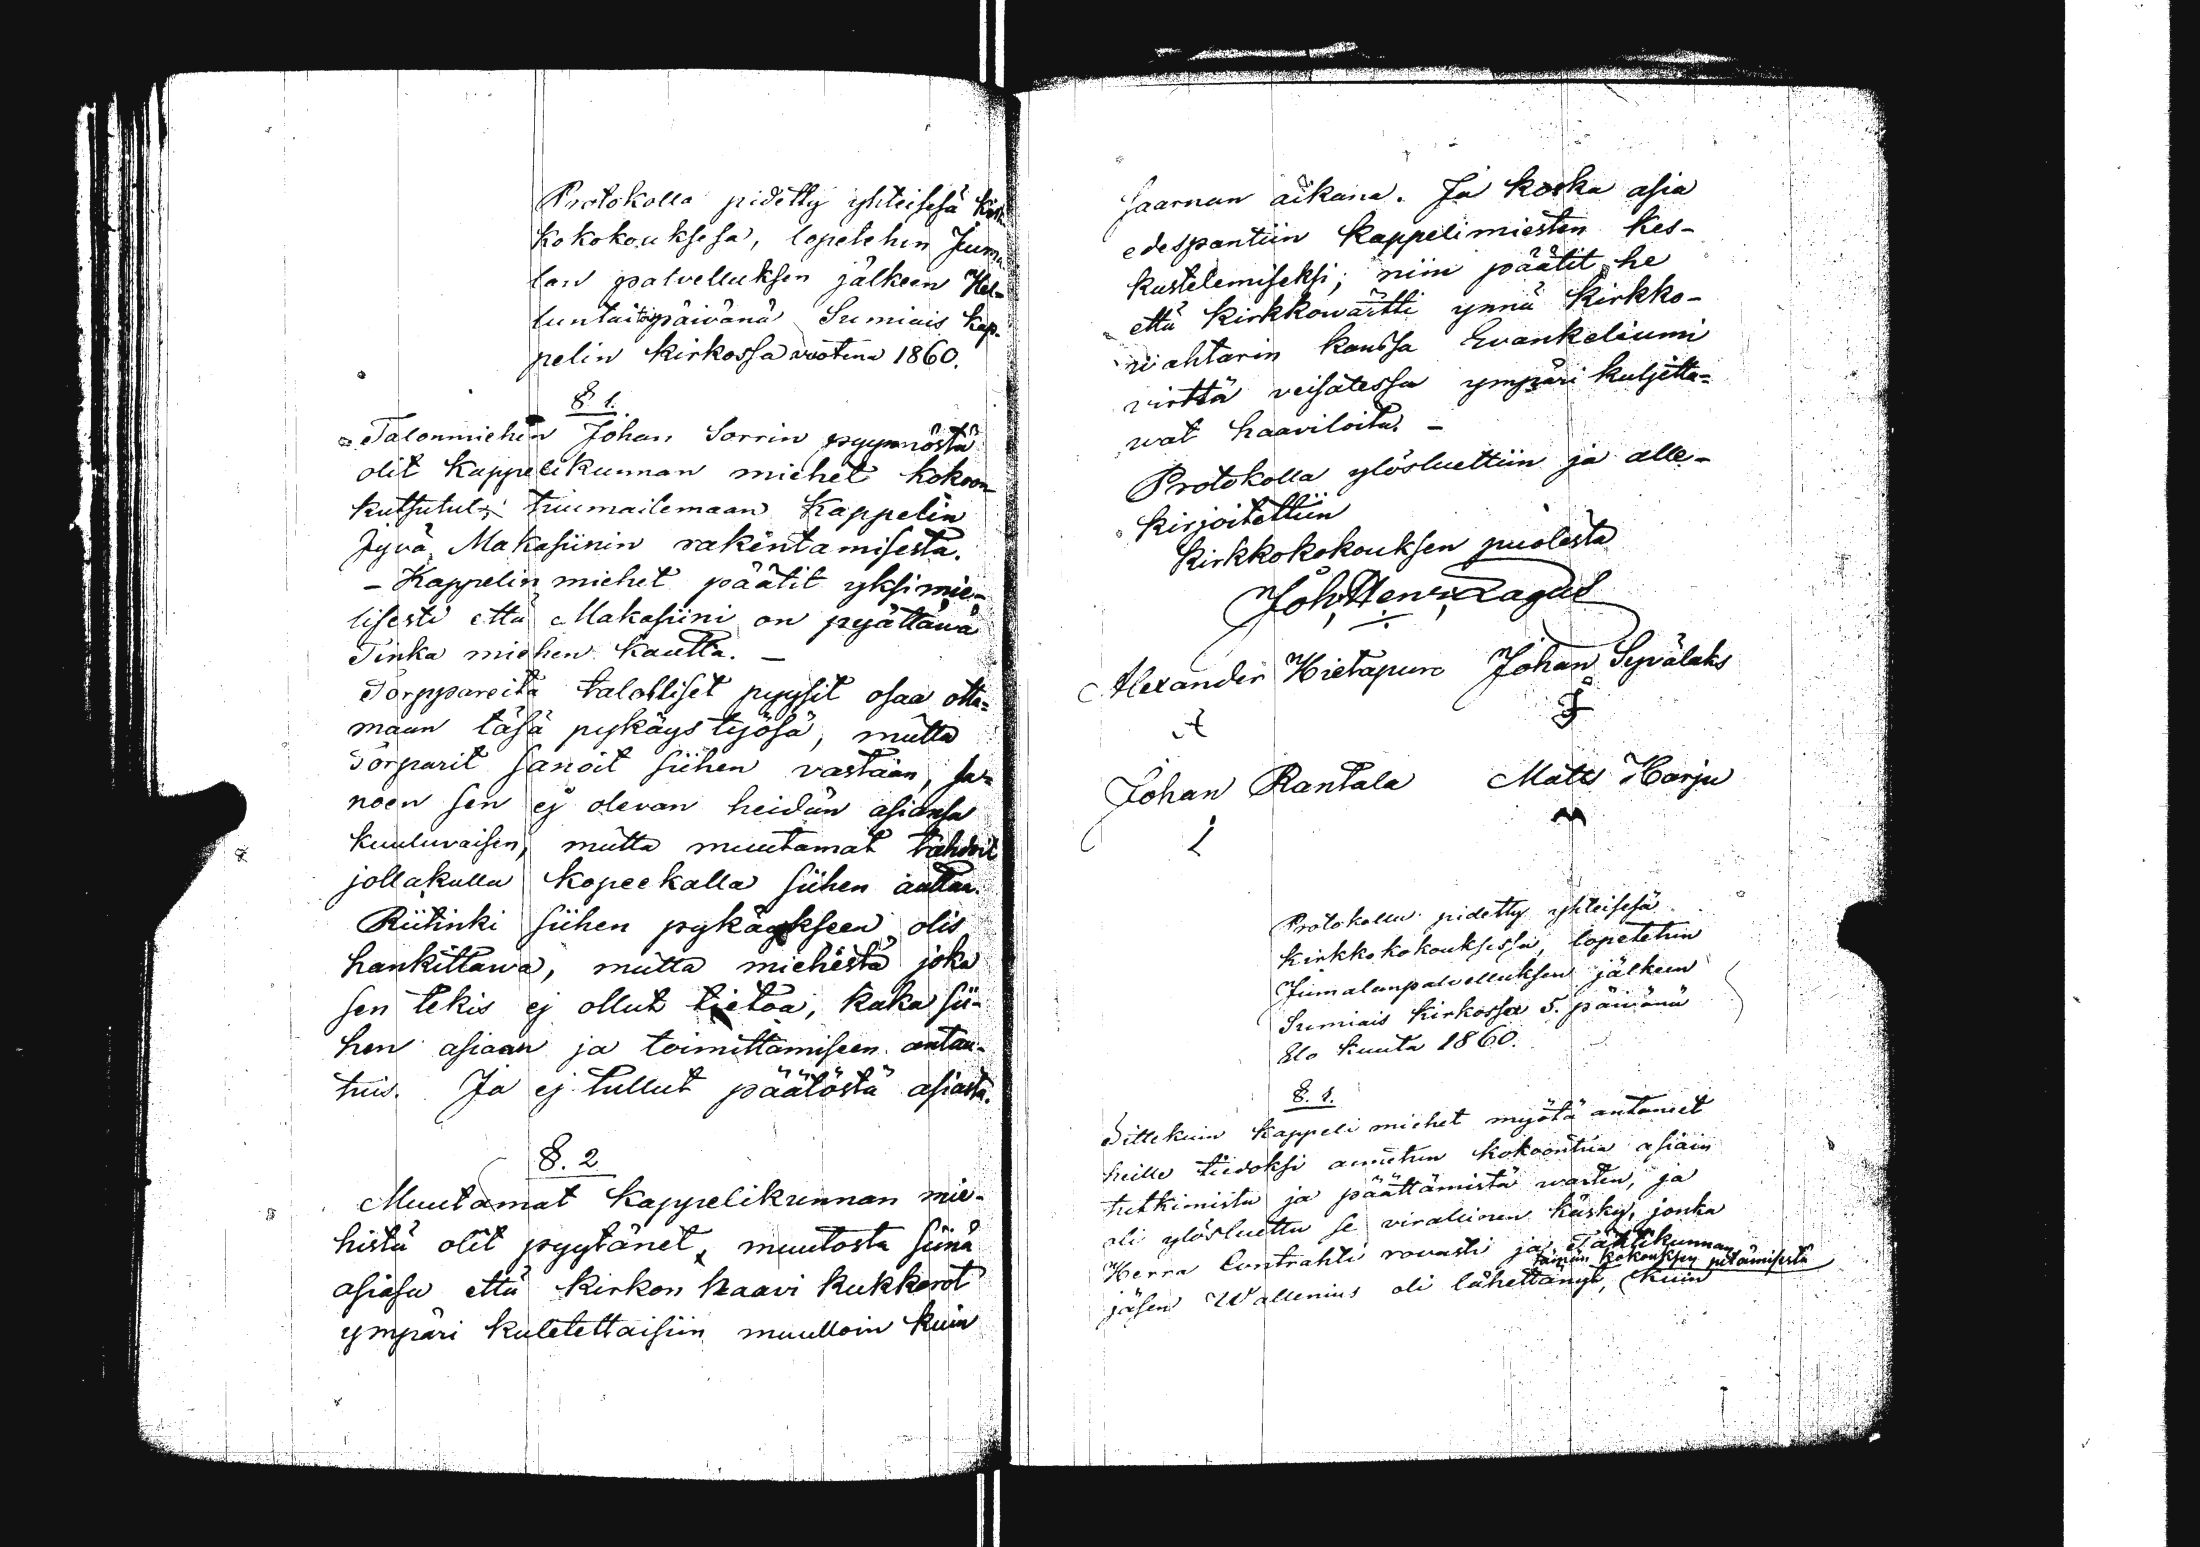 Protokolla pidetty yhteisesä Kirk
kokokouksesa, lopetetun Juma
lan palvelluksen jälkeen Hel-
luntai päivänä Sumiais Kap-
pelin Kirkossa vuotena 1860.
§ 1.
Talonmiehen Johan Sorrin pyynnöstä
olit Kappelikunnan miehet kokoon
kutsutut tuumailemaan Kappelin
Jyvä Makasiinin rakentamisesta.
- Kappelin miehet päätit yksimie-
lisesti että Makasiini on pyättävä
Tinka miehen kautta. -
Torppareita talolliset pyysit osaa otta-
maan täsä pykäys työsä, mutta
Torparit sanoit siihen vastaan, sa-
noen sen ej olevan heidän asiansa
kuuluvaisen, mutta muutamat tahdoit
jollakulla kopeekalla siihen auttaa.
Riitinki siihen pykäykseen olis
hankittawa, mutta miehestä joka
sen tekis ej ollut tietoa, kuka sii-
hen asiaan ja toimittamiseen antau-
tuis. Ja ej tullut päätöstä asiasta.
§. 2
Muutamat Kappelikunnan mie-
histä olit pyytänet, muutosta siinä
asiasa että kirkon haavi kukkerot
ympäri kuletettaisiin muulloin kuin
saarnan aikana. Ja koska asia
edespantiin kappelimiesten kes-
kustelemiseksi; niin päätit he
että Kirkkowärtti ynnä Kirkko-
wahtarin kanssa Evankeliumi
virttä veisatessa ympäri kuljetta-
wat haaviloita. -
Protokolla ylösluettiin ja alle-
kirjoitettiin
Kirkkokokouksen puolesta
Joh, Henr, Lagus
Alexander Hietapuro Johan Syvälaks
A J
Johan Rantala Matts Harju
J M
Protokolla pidetty yhteisesä
Kirkkokokouksessa, lopetetun
Jumalanpalvelluksen jälkeen
Sumiais Kirkossa 5. päivänä
Elo kuuta 1860.
§. 1.
Sittekuin kappeli miehet myötä antaneet
heille tiedoksi annetun kokoontua asiain
tutkimista ja päättämistä warten, ja
oli ylösluettu se virallinen käsky, jonka
Herra Contrahti rovasti ja Täältikunnan
tämän kokouksen pitämisestä
jäsen Wallenius oli lähettänyt, kuin